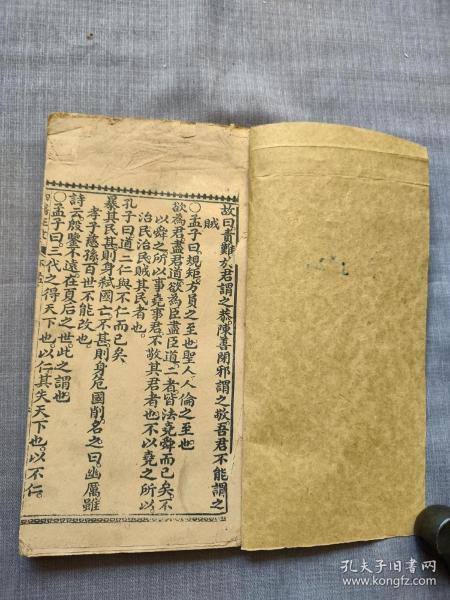 故曰責難於君謂之恭陳善閉邪謂之敬吾君不能謂之
賊
○孟子曰規矩方員之至也聖人人倫之至也
欲為君盡君道欲為臣盡臣道二者皆法堯舜而已矣不
以舜之所以事堯事君不敬其君者也不以堯之所以
治民治民賊其民者也
孔子曰道二仁與不仁而已矣
暴其民甚則身弒國亡不甚則身危國削名之曰幽厲雖
孝子慈孫百世不能改也
詩云殷鑒不遠在夏后之世此之謂也
○孟子曰三代之得天下也以仁其失天下也以不仁
孔夫子旧书网
www.kongfz.com